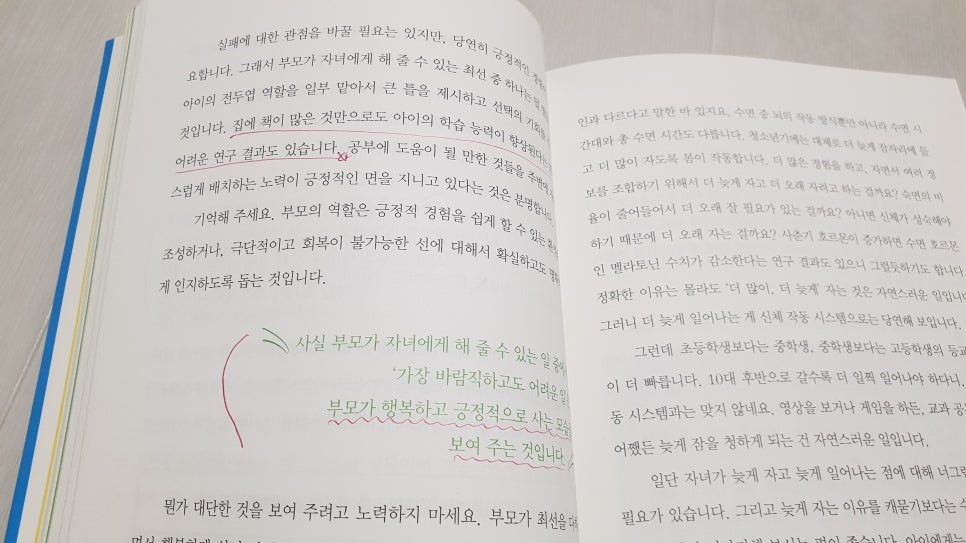 실패에 대한 관점을 바꿀 필요는 있지만, 당연히 긍정적인
요합니다. 그래서 부모가 자녀에게 해 줄 수 있는 최선 중 하나는
아이의 전두엽 역할을 일부 맡아서 큰 틀을 제시하고 선택의 기회를
것입니다. 집에 책이 많은 것만으로도 아이의 학습 능력이 향상된다는
어려운 연구 결과도 있습니다. 공부에 도움이 될 만한 것들을 주변에
스럽게 배치하는 노력이 긍정적인 면을 지니고 있다는 것은 분명합니다.
기억해 주세요. 부모의 역할은 긍정적 경험을 쉽게 할 수 있는
조성하거나, 극단적이고 회복이 불가능한 선에 대해서 확실하고도
게 인지하도록 돕는 것입니다.
사실 부모가 자녀에게 해 줄 수 있는 일 중에
‘가장 바람직하고도 어려운 일
부모가 행복하고 긍정적으로 사는 모습
보여 주는 것입니다.
뭔가 대단한 것을 보여 주려고 노력하지 마세요. 부모가 최선을
인과 다르다고 말한 바 있지요. 수면 중 뇌의 작동 방식뿐만 아니라 수면 시
간대와 총 수면 시간도 다릅니다. 청소년기에는 대체로 더 늦게 잠자리에 들
고 더 많이 자도록 몸이 작동합니다. 더 많은 경험을 하고, 자면서 여러 정
보를 조합하기 위해서 더 늦게 자고 더 오래 자려고 하는 걸까요? 숙면의 비
율이 줄어들어서 더 오래 잘 필요가 있는 걸까요? 아니면 신체가 성숙해야
하기 때문에 더 오래 자는 걸까요? 사춘기 호르몬이 증가하면 수면 호르몬
인 멜라토닌 수치가 감소한다는 연구 결과도 있으니 그럴듯하기도 합니다.
정확한 이유는 몰라도 ‘더 많이, 더 늦게’ 자는 것은 자연스러운 일입니다
그러니 더 늦게 일어나는 게 신체 작동 시스템으로는 당연해 보입니다.
그런데 초등학생보다는 중학생, 중학생보다는 고등학생의 등교
이 더 빠릅니다. 10대 후반으로 갈수록 더 일찍 일어나야 하다니,
동 시스템과는 맞지 않네요. 영상을 보거나 게임을 하든, 교과
어쨌든 늦게 잠을 청하게 되는 건 자연스러운 일입니다.
일단 자녀가 늦게 자고 늦게 일어나는 점에 대해
필요가 있습니다. 그리고 늦게 자는 이유를 캐묻기보다는